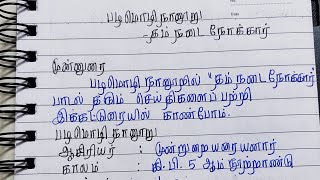 பழமொழி நானூறு
-தம் நடை நோக்கார்
முன்னுரை
பழமொழி நானூறில் "தம் நடை நோக்கார்
பாடல் தரும் செய்திகளைப் பற்றி
இக்கட்டுரையில் காண்போம்.
பழமொழி நானூறு
ஆசிரியர் : முன்றுறையரையனார்
காலம் : கி.பி. 5 ஆம் நூற்றாண்டு